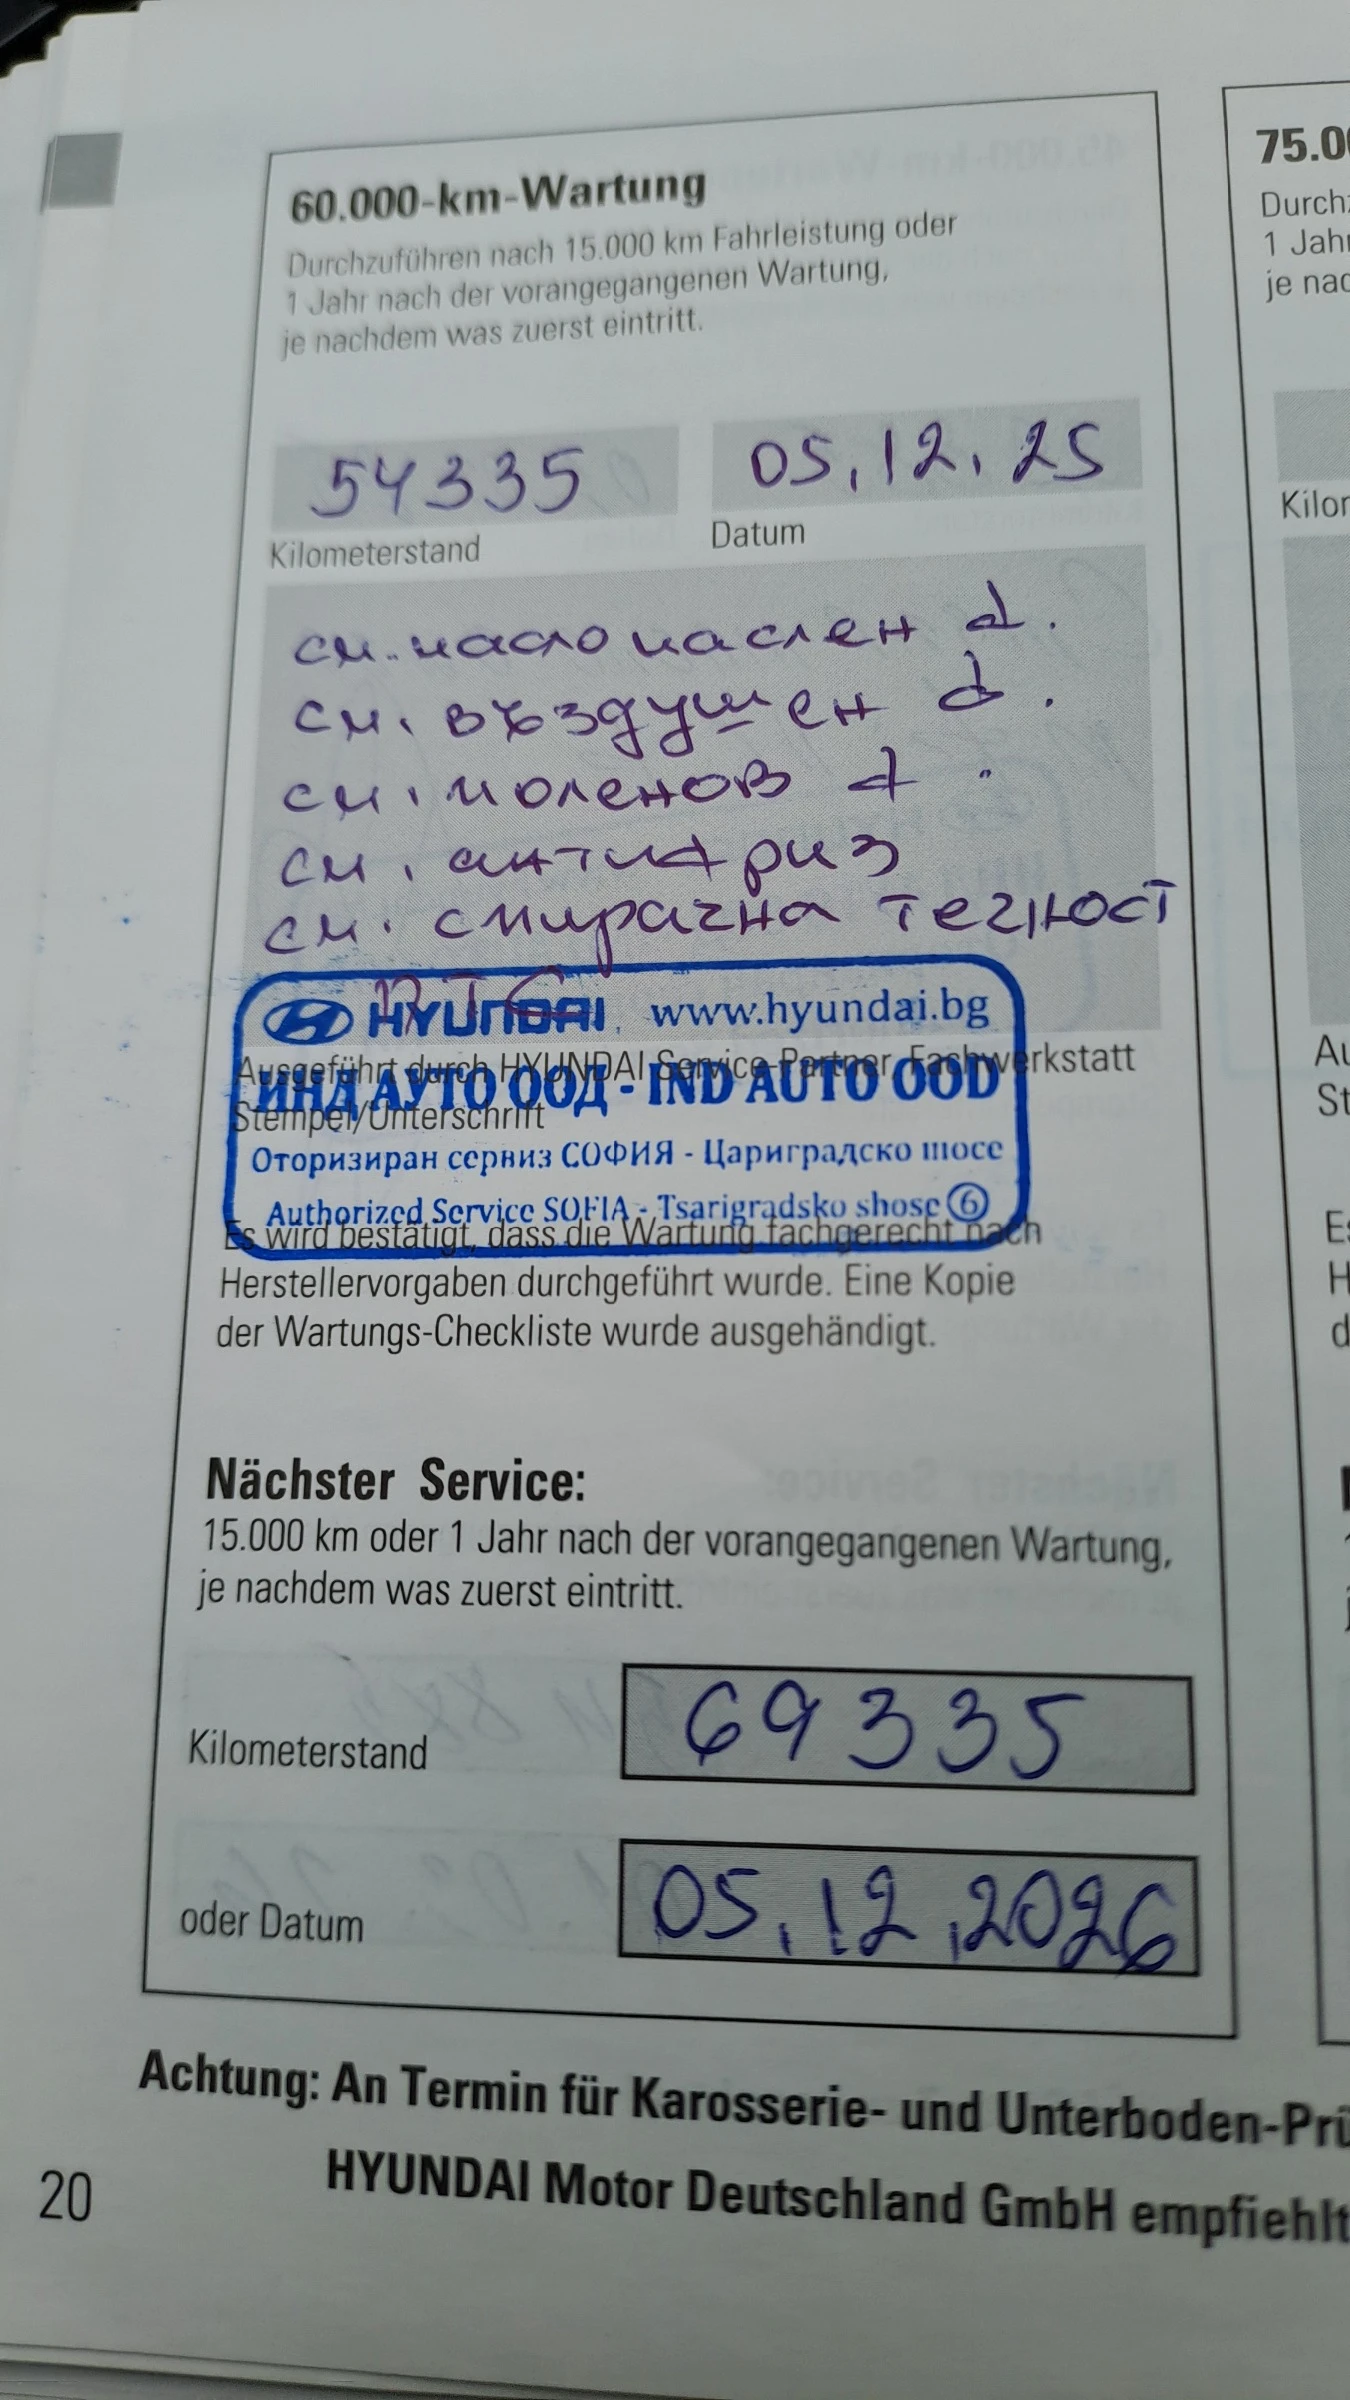 60.000-km-Wartung
Durchzuführen nach 15.000 km Fahrleistung oder
1 Jahr nach der vorangegangenen Wartung,
je nachdem was zuerst eintritt.
54335
05.12.25
Kilometerstand
Datum
см. масло маслен ф.
см. въздушен ф.
см. поленов ф.
см. антифриз
см. спирачна течност
HYUNDAI www.hyundai.bg
Ausgeführt durch HYUNDAI Service-Partner, Fachwerkstatt
ИНД АУТО ООД - IND AUTO OOD
Stempel/Unterschrift
Оторизиран сервиз СОФИЯ - Цариградско шосе
Authorized Service SOFIA - Tsarigradsko shose 6
Es wird bestätigt, dass die Wartung fachgerecht nach
Herstellervorgaben durchgeführt wurde. Eine Kopie
der Wartungs-Checkliste wurde ausgehändigt.
Nächster Service:
15.000 km oder 1 Jahr nach der vorangegangenen Wartung,
je nachdem was zuerst eintritt.
Kilometerstand
69335
oder Datum
05.12.2026
Achtung: An Termin für Karosserie- und Unterboden-Prü
HYUNDAI Motor Deutschland GmbH empfiehlt
20
75.00
Durchz
1 Jahr
je nac
Kilor
Au
St
Es
H
d